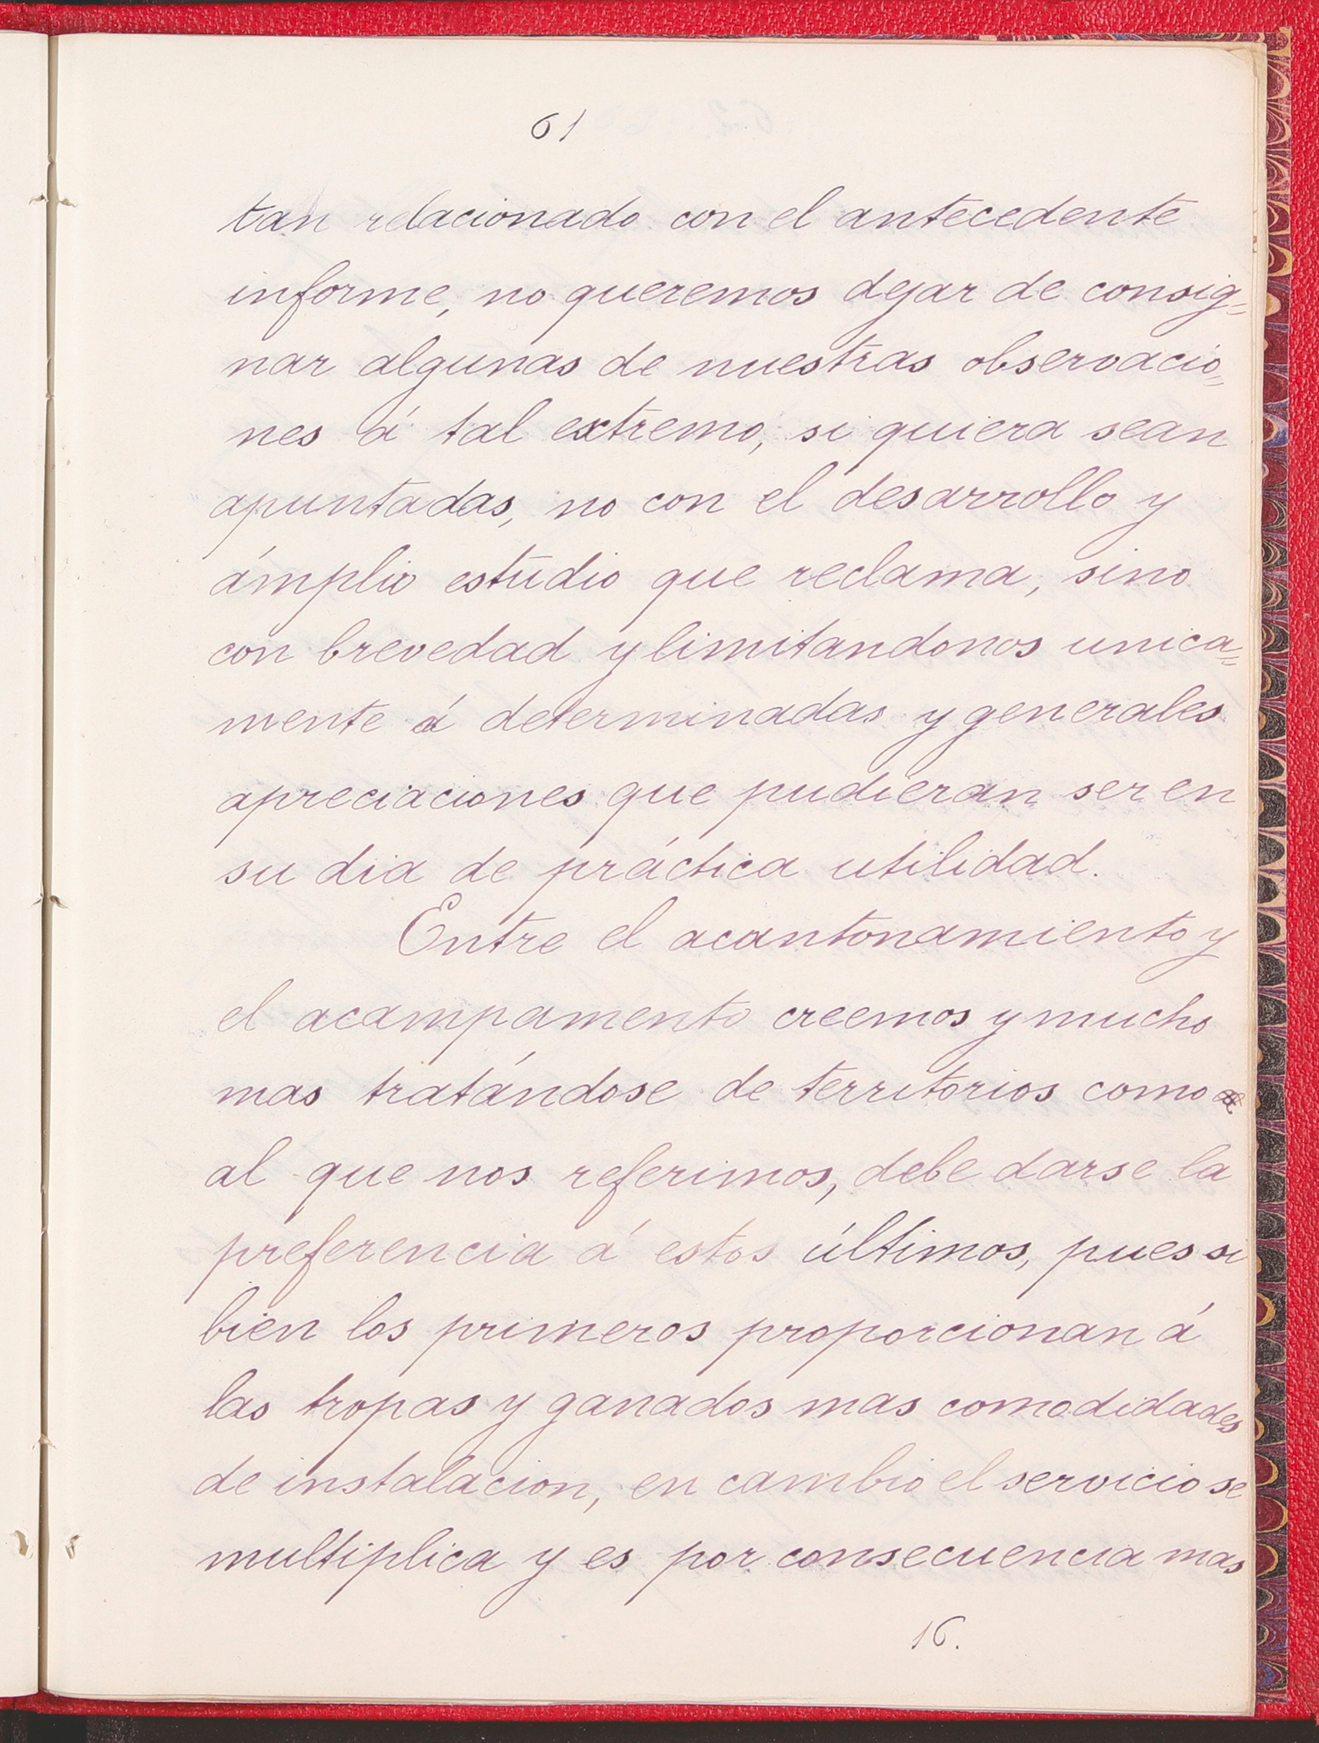 61
tan relacionado con el antecedente
informe, no queremos dejar de consig=
nar algunas de nuestras observacio=
nes á tal extremo, si quiera sean
apuntadas, no con el desarrollo y
ámplio estudio que reclama, sino
con brevedad y limitandonos unica=
mente á determinadas y generales
apreciaciones que pudieran ser en
su dia de práctica utilidad.
Entre el acantonamiento y
el acampamento creemos y mucho
mas tratándose de territorios como
al que nos referimos, debe darse la
preferencia á estos últimos, pues si
bien los primeros proporcionan á
las tropas y ganados mas comodidades
de instalacion, en cambio el servicio se
multiplica y es por consecuencia mas
16.